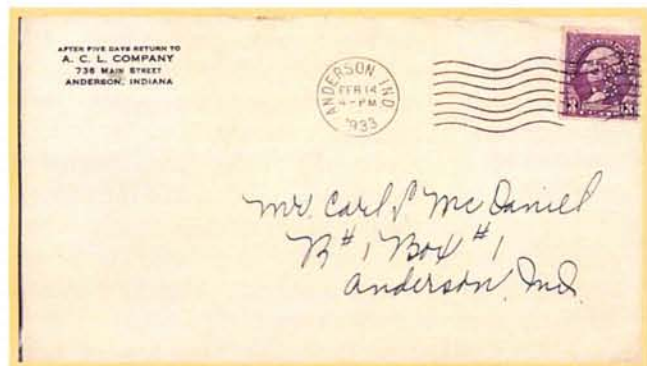 AFTER FIVE DAYS RETURN TO
A. C. L. COMPANY
736 MAIN STREET
ANDERSON, INDIANA
ANDERSON, IND.
FEB 14
4-PM
1933
3 3
Mr. Carl McDaniel
R#1 Box #1
Anderson, Ind.